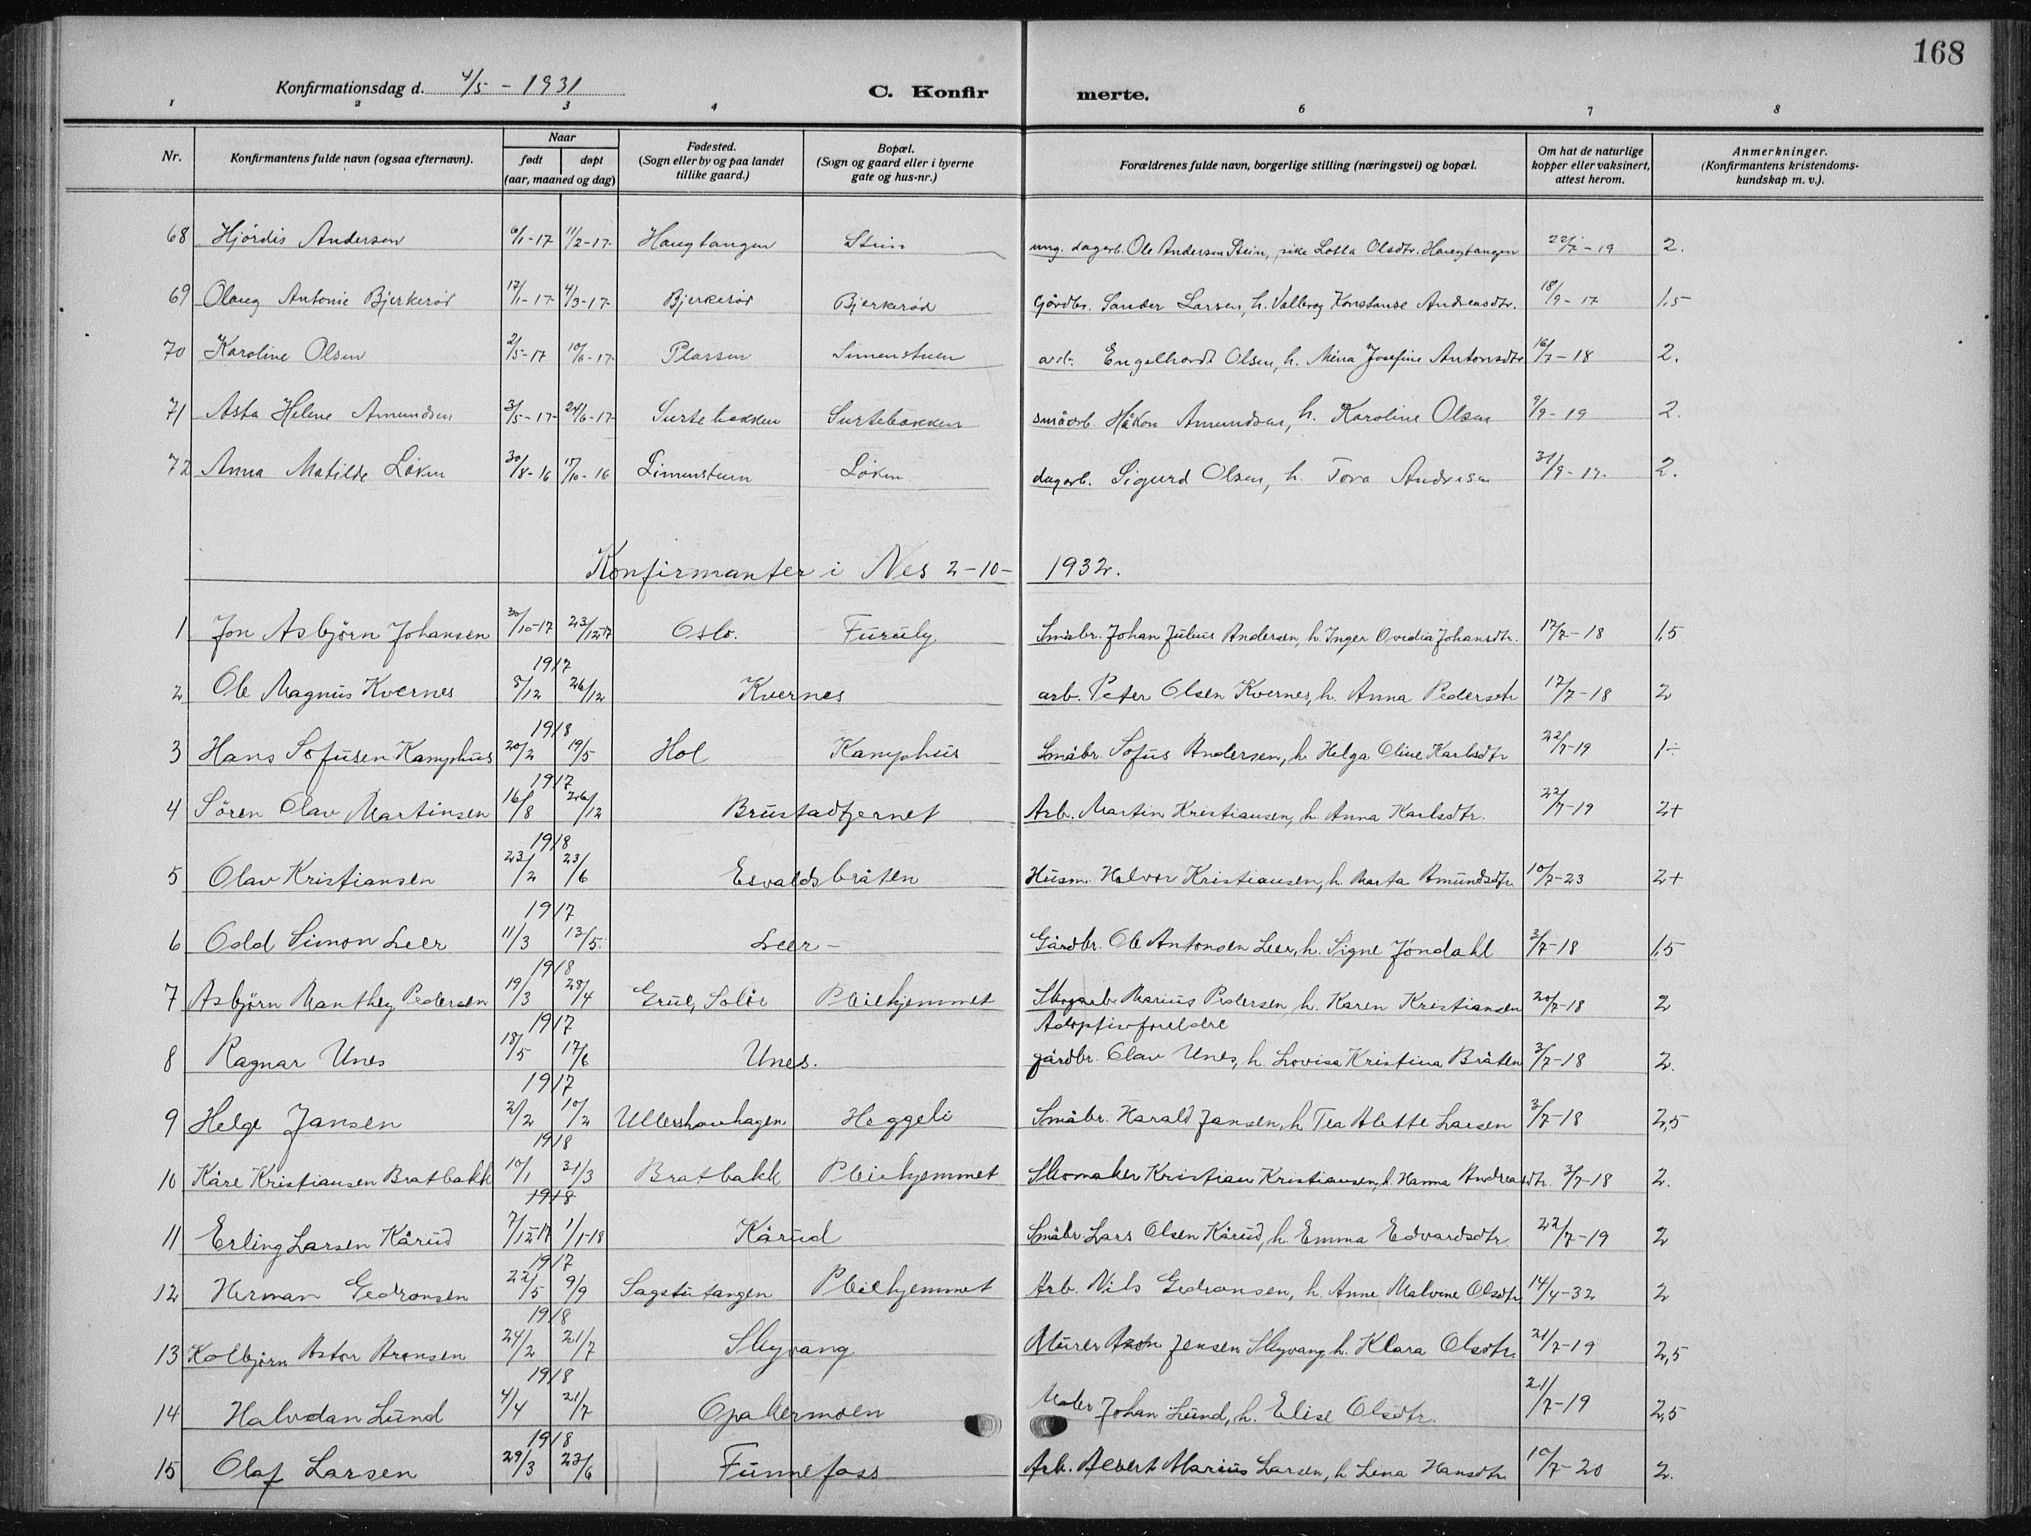 168
Konfirmationsdag d. 4/5 - 1931 C. Konfir merte.
1 2 3 4 6 7 8
Nr. Konfirmantens fulde navn (ogsaa efternavn). Naar født døpt (aar, maaned og dag) Fødested. (Sogn eller by og paa landet tillike gaard.) Bopæl. (Sogn og gaard eller i byerne gate og hus-nr.) Forældrenes fulde navn, borgerlige stilling (næringsvei) og bopæl. Om hat de naturlige kopper eller vaksinert, attest herom. Anmerkninger. (Konfirmantens kristendoms-kundskap m. v.).
68 Hjördis Andersen 6/1-17 11/2-17 Haugtangen Stein ung. dagarb. Ole Andersen Stein, pike Lotta Olsdtr. Haugtangen 22/7-19 2.
69 Olaug Antonie Bjerkerød 17/1-17 4/3-17 Bjerkerød Bjerkerød Gårdbr. Sander Larsen, h. Valborg Konstanse Andreasdtr. 18/9-17 1,5
70 Karoline Olsen 2/5-17 10/6-17 Plassen Simenstuen arb. Engelhardt Olsen, h. Mina Josefine Antonsdtr 16/7-18 2.
71 Asta Helene Amundsen 3/5-17 24/6-17 Surtebakken Surtebakken småarb. Håkon Amundsen, h. Karoline Olsen 9/9-19 2.
72 Anna Matilde Løken 30/8-16 17/10-16 Simenstuen Løken dagarb. Sigurd Olsen, h. Tora Andresen 31/9-17. 2.
Konfirmanter i Nes 2-10- 1932.
1 Jon Asbjørn Johansen 30/10-17 23/12-17 Oslo. Furuly Småbr. Johan Julius Andersen, h. Inger Ovidia Johansdtr. 17/7-18 1,5
1917
2 Ole Magnus Kvernes 5/12 26/12 Kvernes arb. Peter Olsen Kvernes, h. Anna Pedersdtr 17/7-18 2
1918
3 Hans Sofusen Kamphus 20/2 19/5 Hol Kamphus Småbr. Sofus Andersen, h. Helga Oline Karlsdtr 22/7-19 1÷
1917
4 Sören Olav Martinsen 16/8 26/12 Brustadtjernet Arb. Martin Kristiansen, h. Anna Karlsdtr. 22/7-19 2+
1918
5 Olav Kristiansen 23/2 23/6 Esvaldsbråten Husm. Halvor Kristiansen, h. Marta Amundsdtr 10/7-23 2+
1917
6 Odd Simon Leer 11/3 13/5 Leer - Gårdbr. Ole Antonsen Leer, h. Signe Jöndahl 3/7-18 1,5
1918
7 Asbjørn Manthey Pedersen 19/3 28/4 Grue, Solör Pleiehjemmet Marius Pedersen, h. Karen Kristiansen 20/7-18 2
1917 Adoptivforeldre
8 Ragnar Unes 18/5 17/6 Unes. gårdbr. Olav Unes, h. Lovisa Kristina Bråten 3/7-18 2.
1917
9 Helge Jansen 2/2 10/2 Ullershovhagen Heggeli Småbr. Harald Jansen, h. Tea Alette Larsen 3/7-18 2,5
1918
10 Kåre Kristiansen Bratbakk 10/1 31/3 Bratbakk Pleiehjemmet Skomaker Kristian Kristiansen, h. Hanna Andreasdtr. 3/7-18 2.
1918
11 Erling Larsen Kårud 7/12-17 1/1-18 Kårud Småbr. Lars Olsen Kårud, h. Emma Edvardsdtr 22/7-19 2
1917
12 Herman Gedronsen 22/5 9/9 Sagstutangen Pleiehjemmet Arb. Nils Gedronsen, h. Anne Malvine Olsdtr. 14/4-32 2
1918
13 Kolbjørn Astor Aronsen 24/2 21/7 Skyvang Murer Aron Jensen Skyvang h. Klara Olsdtr. 21/7-19 2,5
1918
14 Halvdan Lund 4/4 21/7 Opakermoen Maler Johan Lund, h. Elise Olsdtr. 21/7-19 2,5
1918
15 Olaf Larsen 29/3 23/6 Funnefoss Arb. Albert Marius Larsen, h. Lina Hansdtr 10/7-20 2.